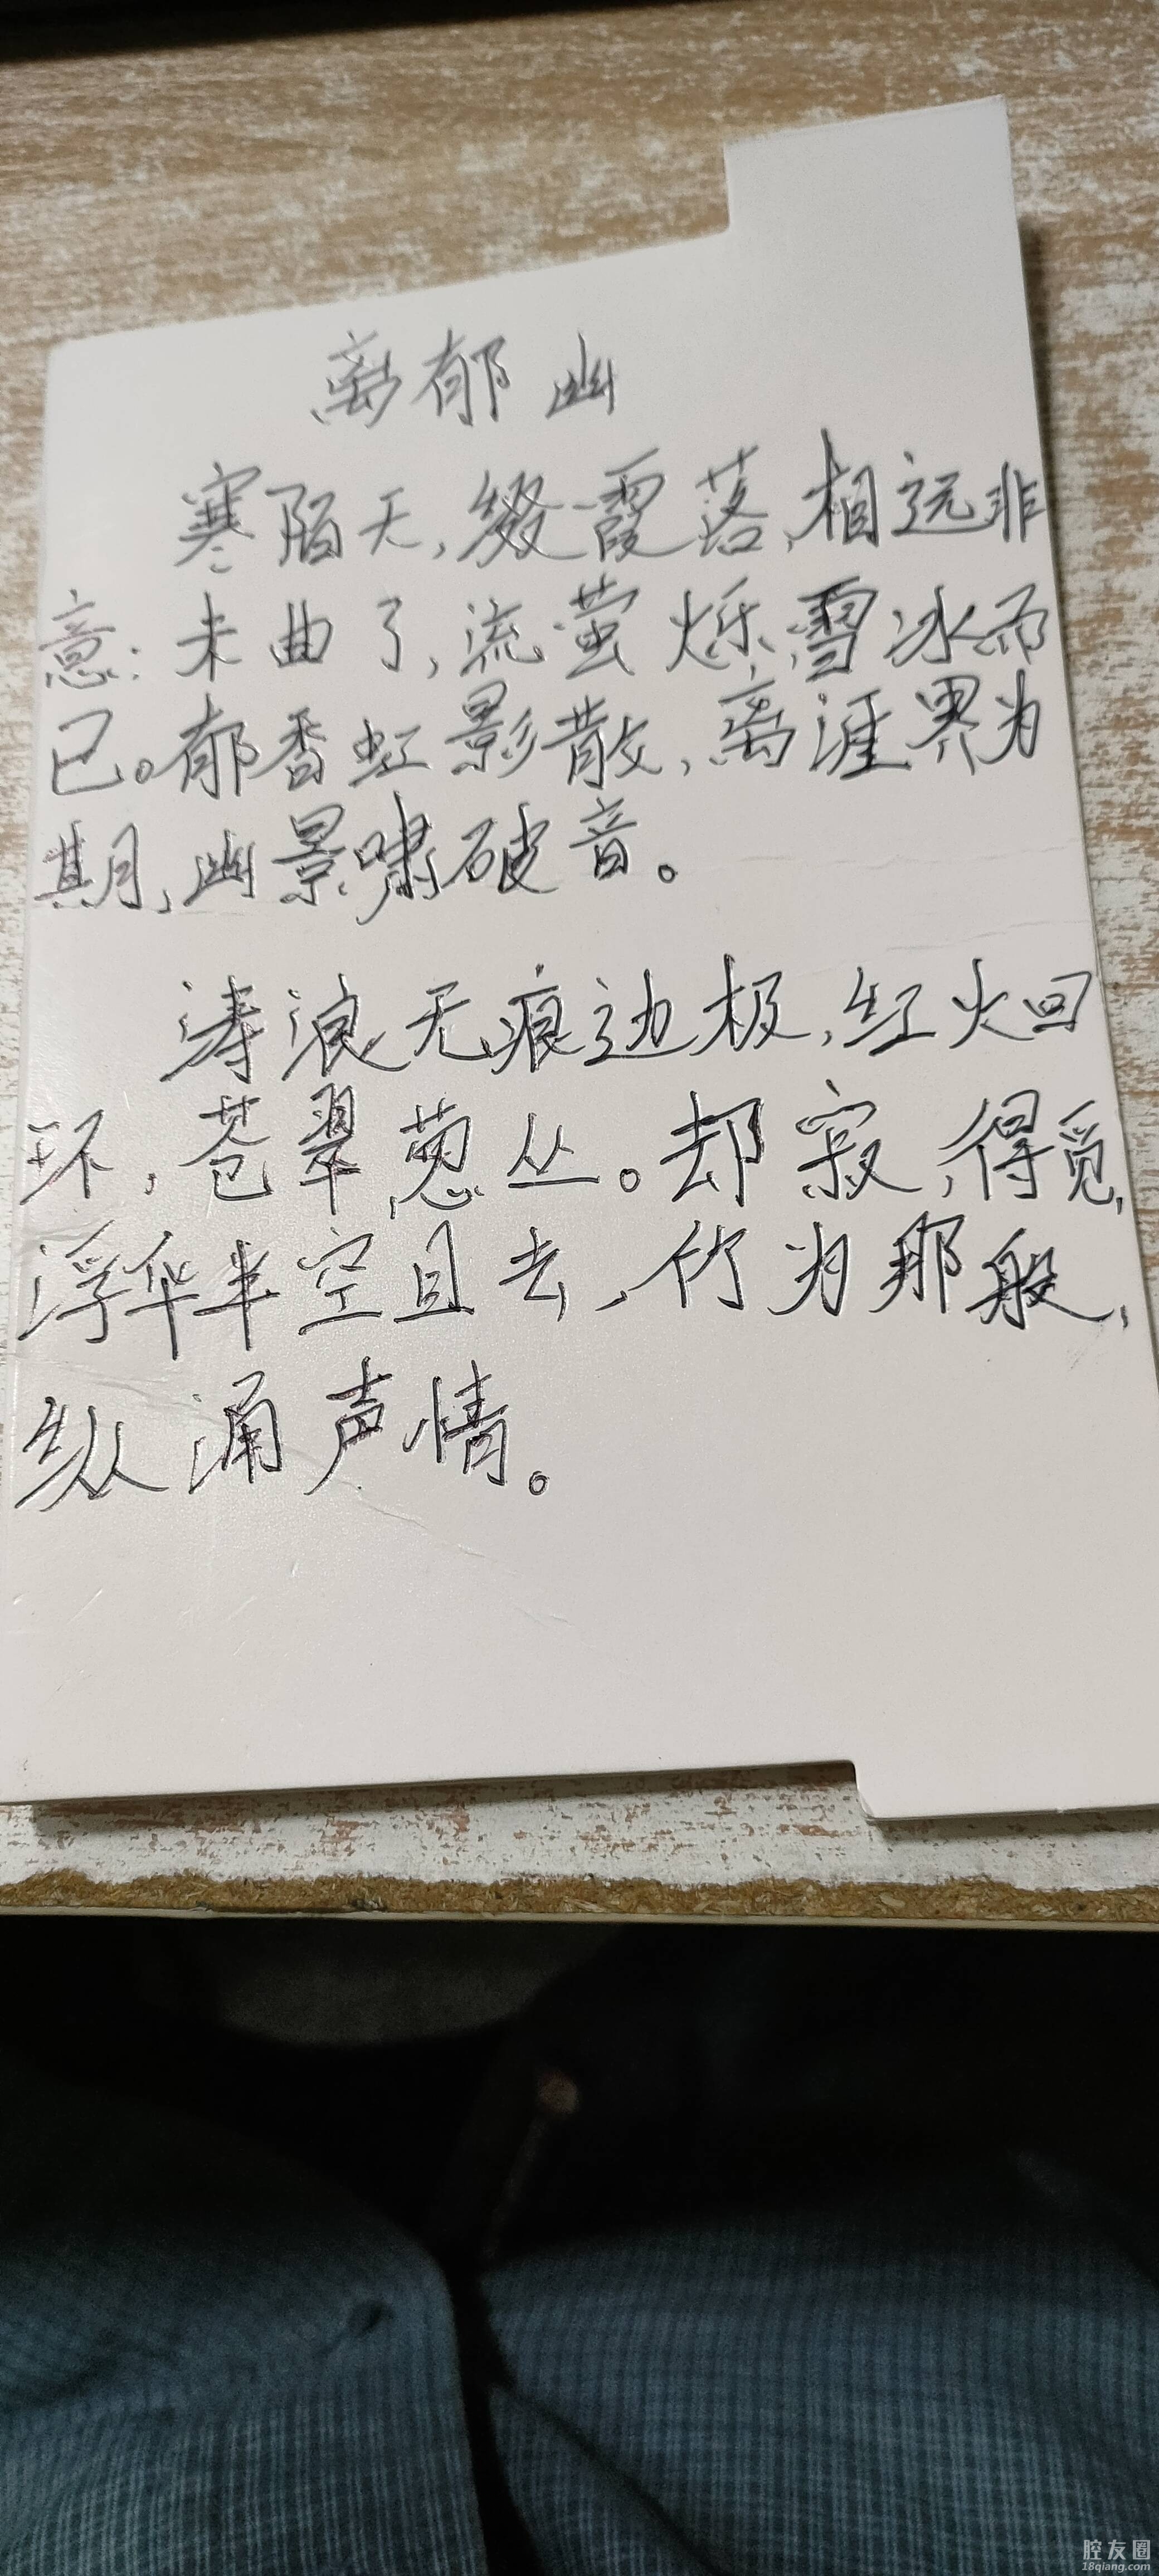 离郁幽
寒陌天,缀霞落,相远非
意:未曲了,流萤烁,雪冰而
已。郁香虹影散,离涯界为
期,幽景啸破音。
涛浪无痕边极,红火回
环,苍翠葱丛。却寂,得觅,
浮华半空且去,竹为那般,
纵涌声情。
腔友圈
18qiang.com